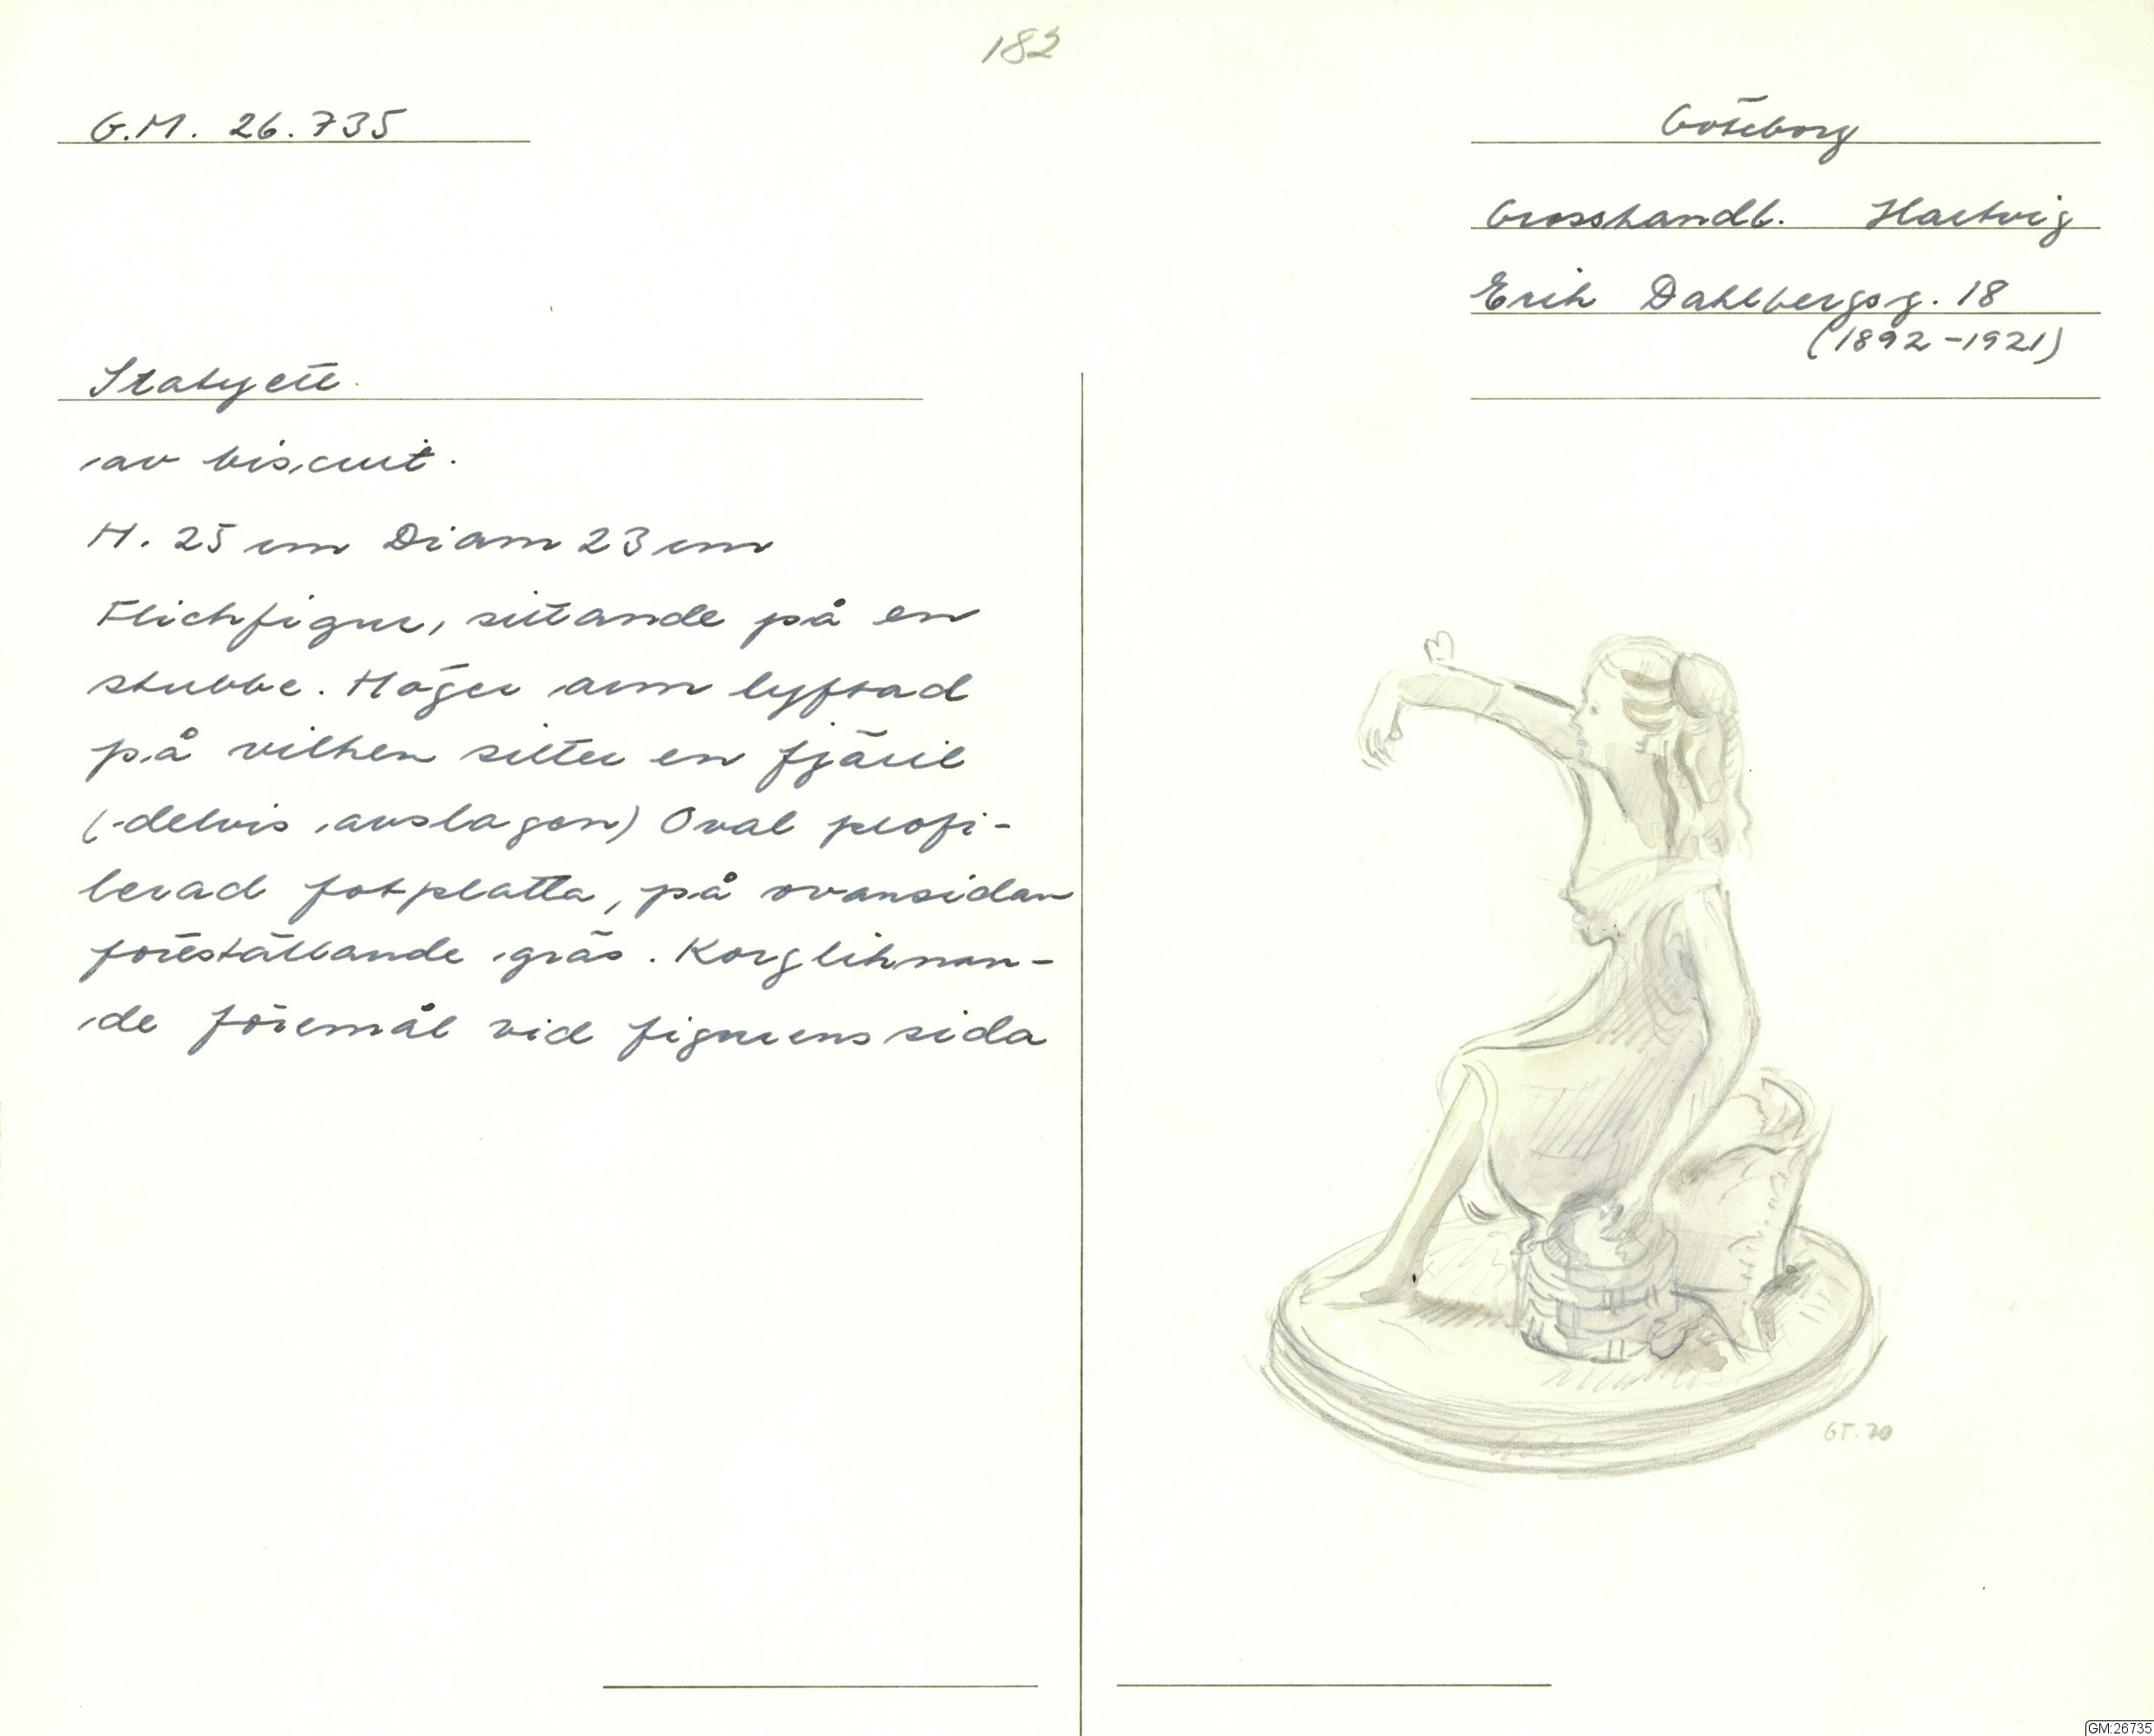 182
G.M. 26.735
Göteborg
Grosshandl. Hartvig
Erik Dahlbergsg. 18
(1892-1921)
Statyett
av biscuit.
H. 25 cm Diam 23 cm
Flickfigur, sittande på en
stubbe. Höger arm lyftad
på vilken sitter en fjäril
(delvis avslagen) Oval profi-
lerad fotplatta, på ovansidan
föreställande gräs. Korgliknan-
de föremål vid figurens sida
GT. 70
GM:26735